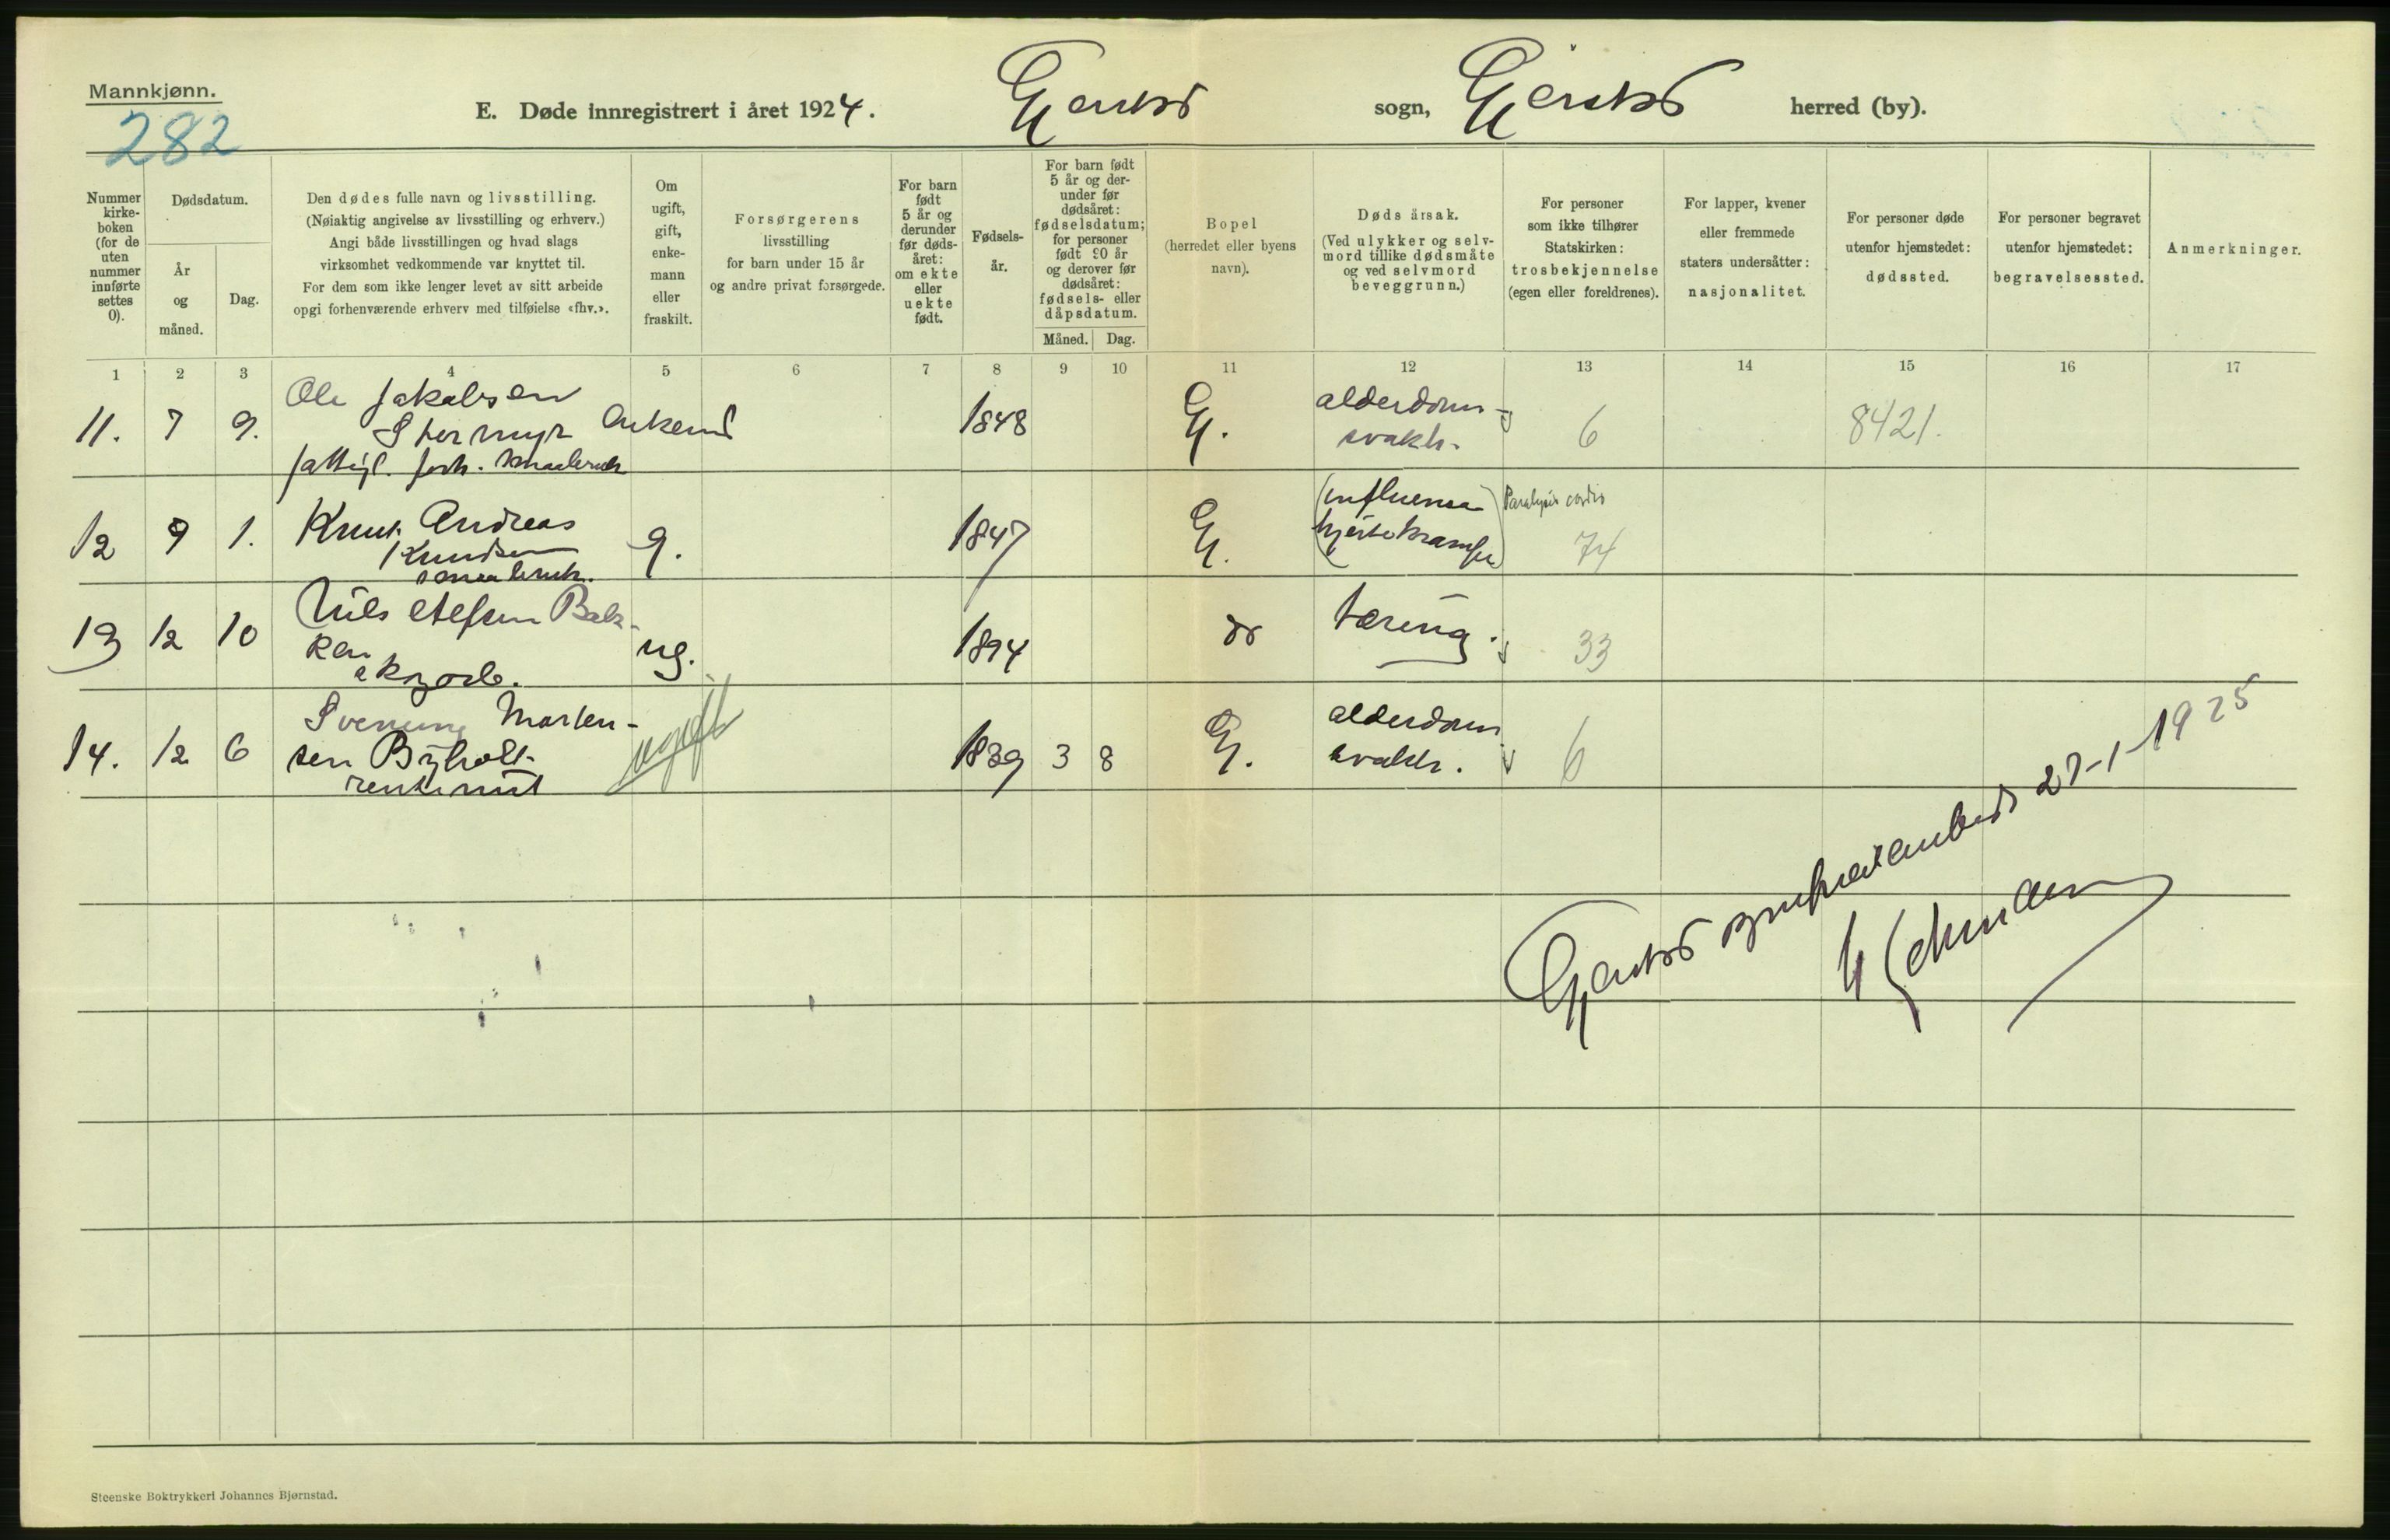 Mannkjønn.
282
E. Døde innregistrert i året 1924. Gjerstad sogn, Gjerstad herred (by).
Nummer
kirke-
boken
(for de
uten
nummer
innførte
settes
0).
Dødsdatum.
År
og
måned.
Dag.
Den dødes fulle navn og livsstilling.
(Nøiaktig angivelse av livsstilling og erhverv.)
Angi både livsstillingen og hvad slags
virksomhet vedkommende var knyttet til.
For dem som ikke lenger levet av sitt arbeide
opgi forhenværende erhverv med tilføielse «fhv.».
Om
ugift,
gift,
enke-
mann
eller
fraskilt.
Forsørgerens
livsstilling
for barn under 15 år
og andre privat forsørgede.
For barn
født
5 år og
derunder
før døds-
året:
om ekte
eller
uekte
født.
Fødsels-
år.
For barn født
5 år og der-
under før
dødsåret:
fødselsdatum;
for personer
født 90 år
og derover før
dødsåret:
fødsels- eller
dåpsdatum.
Måned. Dag.
Bopel
(herredet eller byens
navn).
Døds årsak.
(Ved ulykker og selv-
mord tillike dødsmåte
og ved selvmord
beveggrunn.)
For personer
som ikke tilhører
Statskirken:
trosbekjennelse
(egen eller foreldrenes).
For lapper, kvener
eller fremmede
staters undersåtter:
nasjonalitet.
For personer døde
utenfor hjemstedet:
dødssted.
For personer begravet
utenfor hjemstedet:
begravelsessted.
Anmerkninger.
1 2 3 4 5 6 7 8 9 10 11 12 13 14 15 16 17
Ole Jakobsen alderdoms-
11. 7 9. Stormyr Enkemd 1848 G. svakh. 6 8421.
fattigl. forh. smaabruk
Knut Andreas (influensa) Paralysis cordis
12 9 1. Knudsen g. 1847 G. hjertekrampe 74
smaabruk.
Nils Alefsen Bak-
13 12 10 ken ug. 1894 do tæring. 33
skogarb.
Svenung Morten- alderdoms
14. 12 6 sen Byholt ugift 1839 3 8 G. svakh. 6
rentenist
Gjerstad sogneprestembede 27-1-1925
Steenske Boktrykkeri Johannes Bjørnstad.